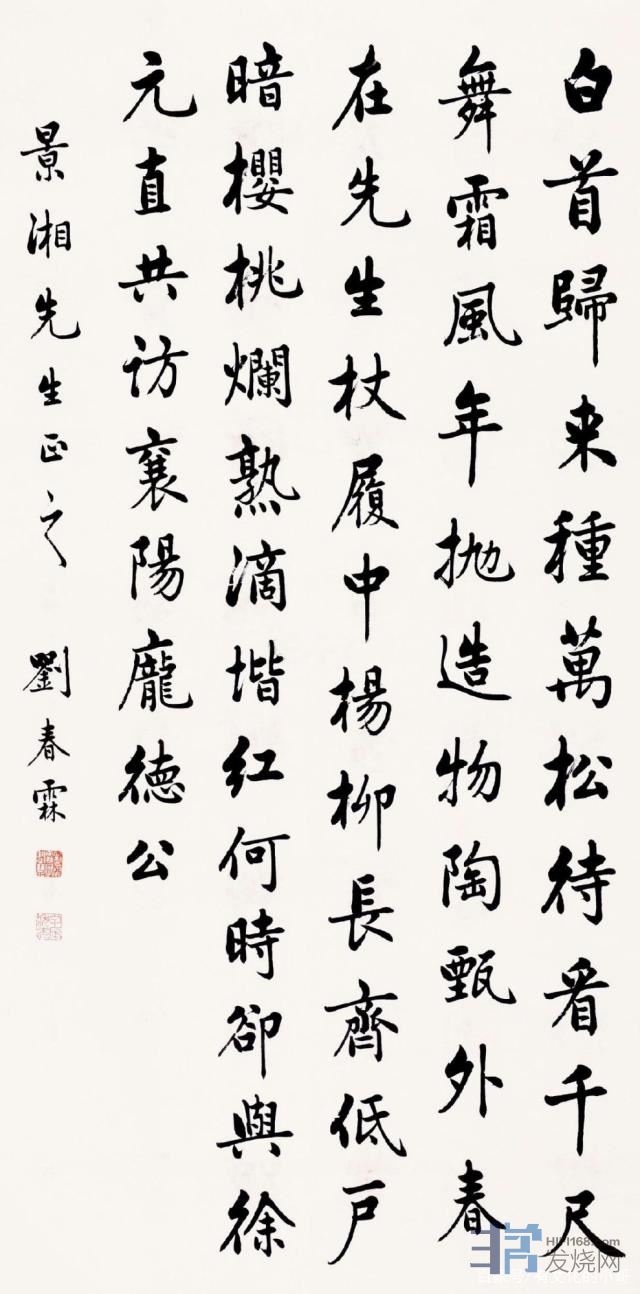 白首歸来種萬松待看千尺
舞霜風年抛造物陶甄外春
在先生杖履中楊柳長齊低戶
暗櫻桃爛熟滴堦红何時卻與徐
元直共访襄陽龐德公
景湘先生正之 劉春霖
HIFI168.com
发烧网
百家号/有文化的小哥